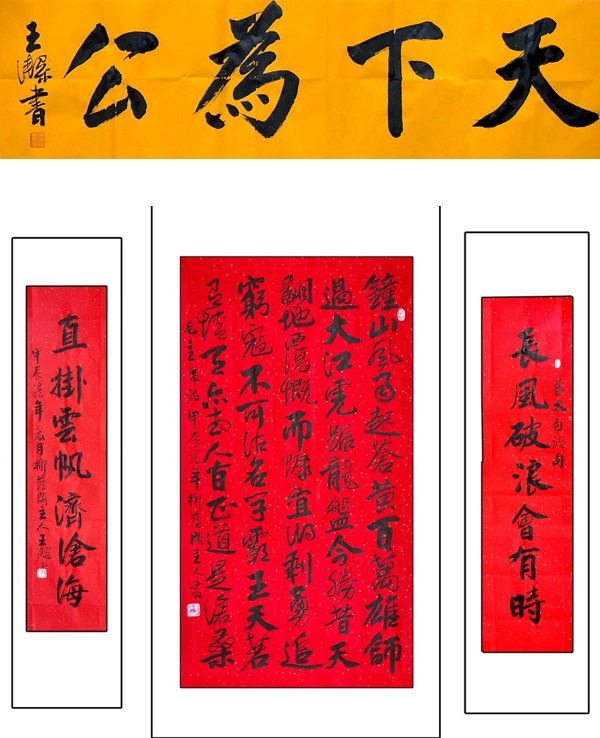 天下為公
王 書
長風破浪會有時
李太白詩句
鐘山風雨起蒼黃百萬雄師
過大江虎踞龍盤今勝昔天
翻地覆慨而慷宜將剩勇追
窮寇不可沽名学霸王天若
有情天亦老人间正道是滄桑
毛主席詩 甲辰 年柳蔭 主人書
直掛雲帆濟滄海
甲辰 年 月柳蔭 主人王